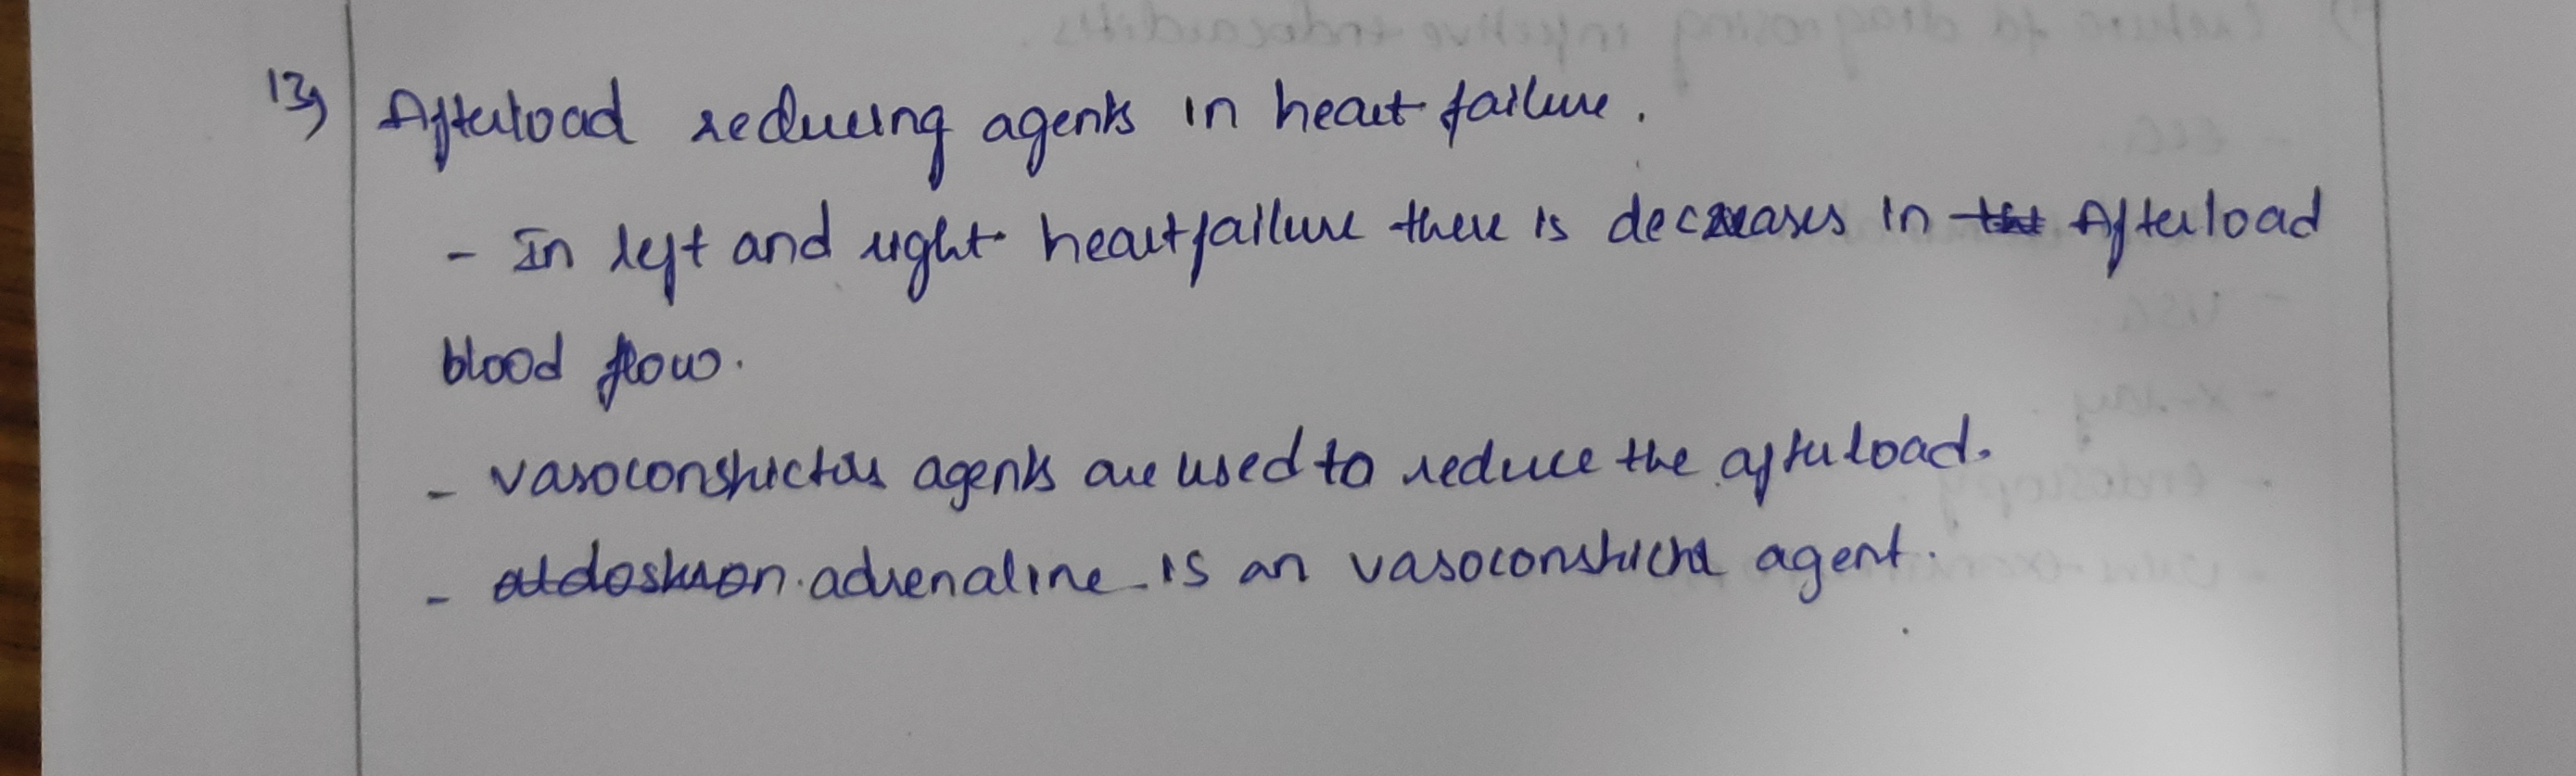 13) Afterload reducing agents in heart failure.
- In left and right heartfailure there is decreases in Afterload
blood flow.
- vasoconstrictors agents are used to reduce the afterload.
- aldosteron. adrenaline is an vasoconstrictor agent.